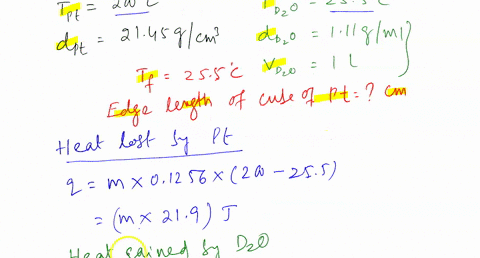 T_Pt = 200°C
T_D2O = 25.5°C
d_Pt = 21.45 g/cm³
d_D2O = 1.11 g/ml
V_D2O = 1 L
T_f = 25.5°C
Edge length of cube of Pt = ? cm
Heat lost by Pt
q = m × 0.1256 × (200 - 25.5)
= (m × 21.9) J
Heat gained by D2O